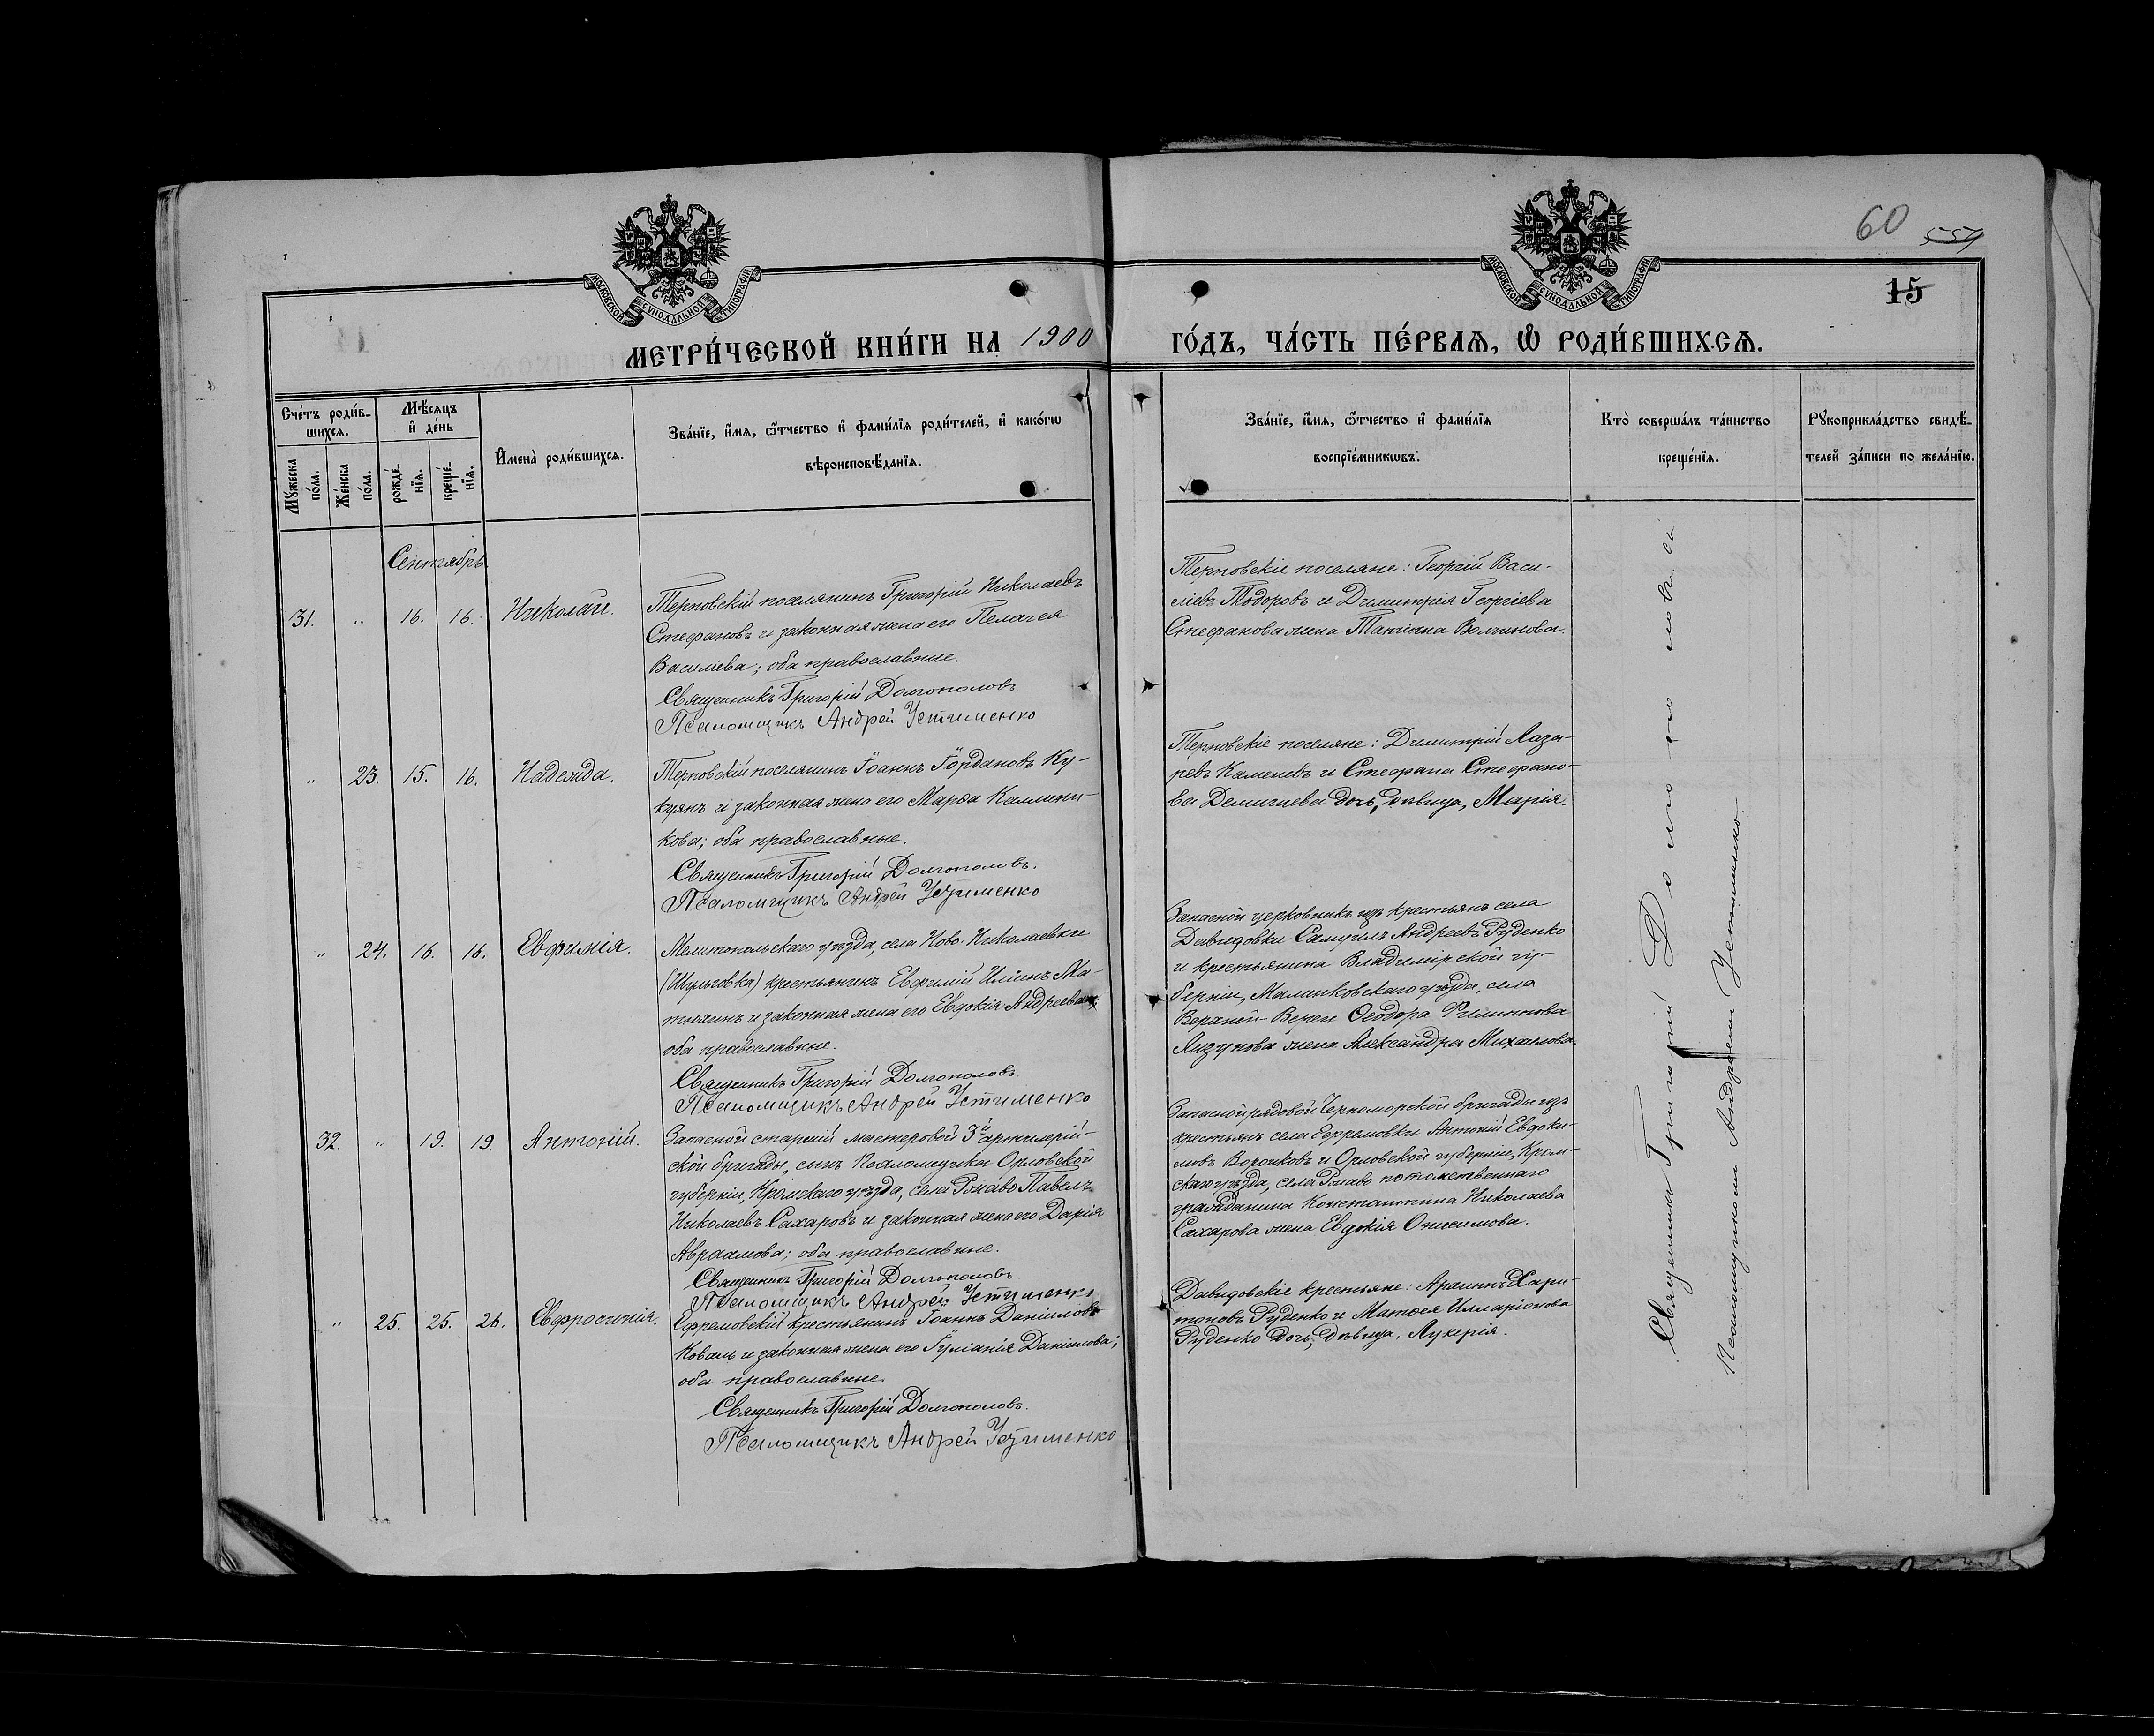 60 554
МОСКОВСКОЙ СѴНОДАЛЬНОЙ ТИПОГРАФІИ
МОСКОВСКОЙ СѴНОДАЛЬНОЙ ТИПОГРАФІИ
15
МЕТРИ́ЧЕСКОЙ КНИ́ГИ НА 1900 ГО́ДЪ, ЧА́СТЬ ПЕ́РВАѦ, Ѽ РОДИ́ВШИХСѦ.
Сче́тъ роди́в-
шихсѧ.
Мꙋ́жеска по́ла.
Же́нска по́ла.
Мѣ́сѧцъ и҆ де́нь
рожде́-
нїѧ.
креще́-
нїѧ.
И҆мена̀ роди́вшихсѧ.
Зва́нїе, и҆́мѧ, ѻ҆́тчество и҆ фами́лїѧ роди́телей, и҆ како́гѡ
вѣроисповѣ́данїѧ.
Зва́нїе, и҆́мѧ, ѻ҆́тчество и҆ фами́лїѧ
воспрїе́мникѡвъ.
Кто̀ соверша́лъ та́инство
креще́нїѧ.
Рꙋкоприкла́дство свидѣ́-
телей за́писи по жела́нїю.
Сентябрь.
31. „ 16. 16. Николай.
Терновскій поселянинъ Григорій Николаевъ
Стефановъ и законная жена его Пелагея
Василіева; оба православные.
Священникъ Григорій Долгополовъ
Псаломщикъ Андрей Устименко
Терновскіе поселяне: Георгій Васи-
ліевъ Тодоровъ и Димитрія Георгіева
Стефанова жена Татіана Волчинова.
„ 23. 15. 16. Надежда.
Терновскій поселянинъ Іоаннъ Іордановъ Ку-
куянъ и законная жена его Марѳа Каллини-
кова; оба православные.
Священникъ Григорій Долгополовъ.
Псаломщикъ Андрей Устименко
Терновскіе поселяне: Димитрій Лаза-
ревъ Каменевъ и Стефана Стефано-
ва Демичева дочь, дѣвица, Марія.
„ 24. 16. 16. Евфимія.
Мелитопольскаго уѣзда, села Ново-Николаевки
(Шульговка) крестьянинъ Евфимій Илiинъ Ма-
тюхинъ и законная жена его Евдокія Андреева;
оба православные.
Священникъ Григорій Долгополовъ.
Псаломщикъ Андрей Устименко
Запасной церковникъ изъ крестьянъ села
Давидовки Самуилъ Андреевъ Руденко
и крестьянина Владимірской гу-
берніи, Маленковскаго уѣзда, села
Верхней- Ѳеодора Филиппова
Лизунова жена Александра Михаилова.
32. „ 19. 19. Антоній.
Запасной старшій мастеровой 3й артилерій-
ской бригады, сынъ Псаломщика Орловской
губерніи, Кромскаго уѣзда, села Ржаво Павелъ
Николаевъ Сахаровъ и законная жена его Дарія
Авраамова; оба православные.
Священникъ Григорій Долгополовъ.
Псаломщикъ Андрей Устименко
Запасной рядовой Черноморской бригады изъ
крестьянъ села Ефремовки Антоній Евдоки-
мовъ Воронковъ и Орловской губерніи, Кром-
скаго уѣзда, села Ржаво потомственнаго
гражданина Константина Николаева
Сахарова жена Евдокія Онисимова.
„ 25. 25. 26. Евфросинія.
Ефремовскій крестьянинъ Іоаннъ Даніиловъ
Коваль и законная жена его Іуліанія Даніилова;
оба православные.
Священникъ Григорій Долгополовъ.
Псаломщикъ Андрей Устименко
Давидовскіе крестьяне: Хари-
тоновъ Руденко и Матѳея Илларіонова
Руденко дочь, дѣвица, Лукерія.
Священникъ Григорій Долгополовъ съ
Псаломщикомъ Андреемъ Устименко